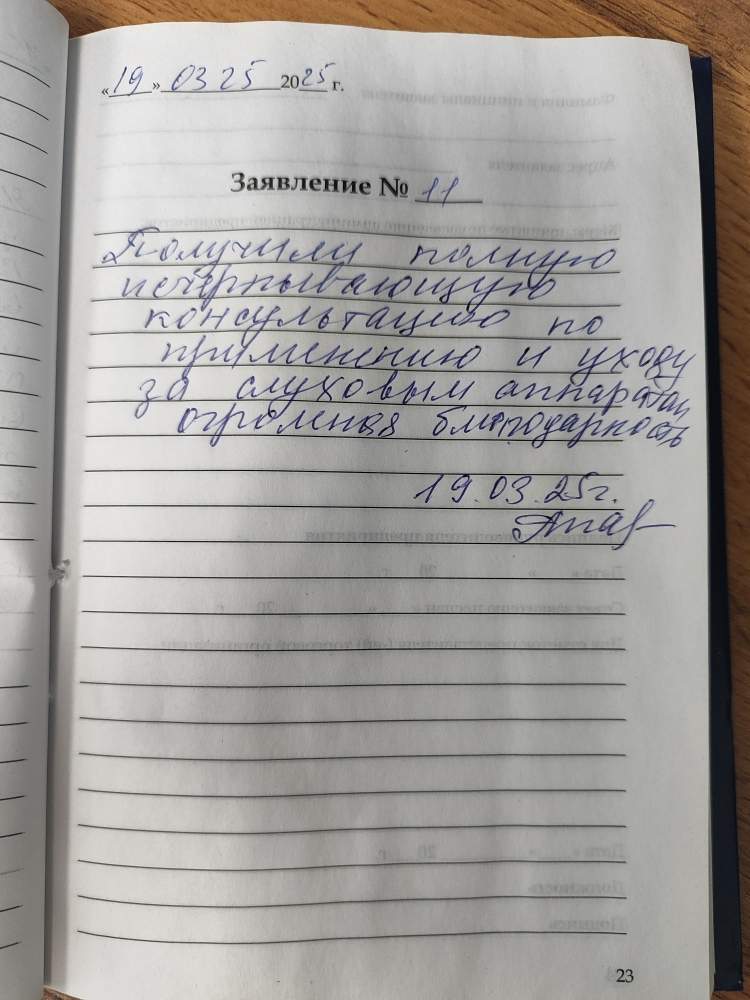 «19» 03 25 2025 г.
Заявление № 11
Получили полную
исчерпывающую
консультацию по
применению и уходу
за слуховым аппаратам
огромная благодарность
19.03.25г.
23